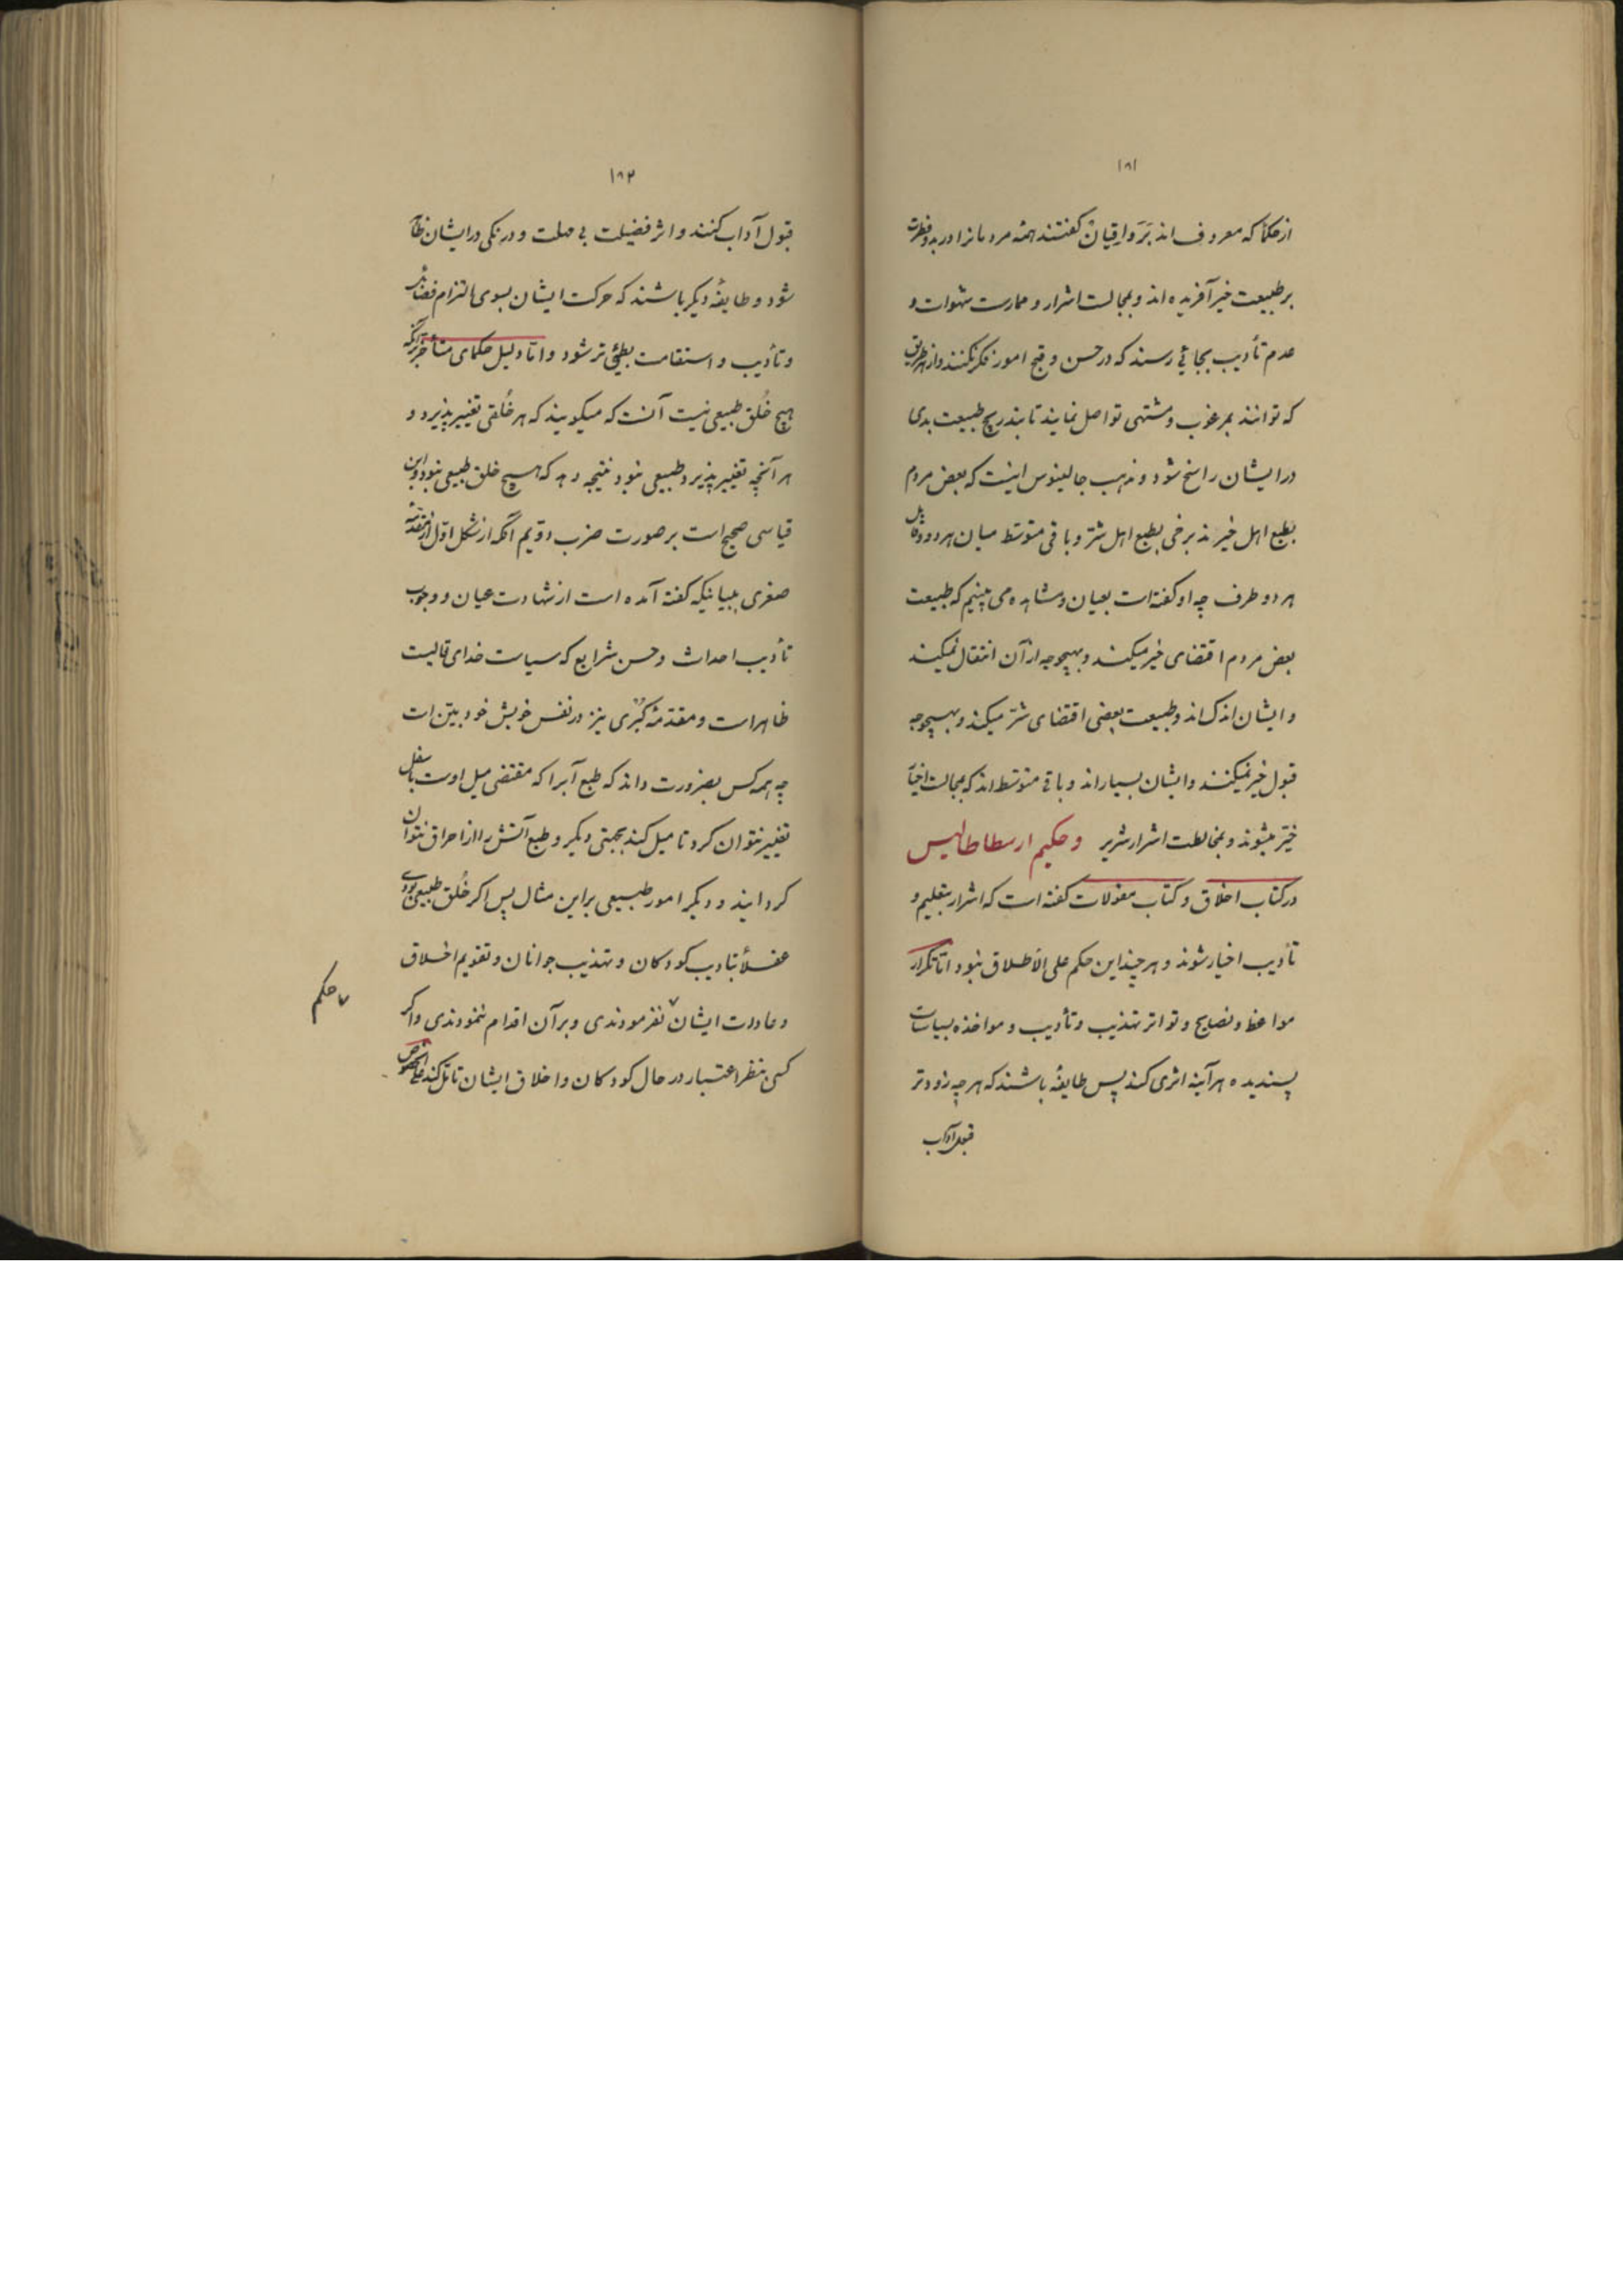 ۱۸۱
از حکما که معروف اند برواقیان گفتند همه مردمانرا در بدو فطرت
بر طبیعت خیر آفریده اند و بمجالست اشرار و ممارست شهوات و
عدم تأدیب بجائی رسند که در حسن و قبح امور فکر نکنند و از هر طریق
که توانند بمرغوب و مشتهی تواصل نمایند تا بتدریج طبیعت بدی
در ایشان راسخ شود و مذهب جالینوس اینست که بعض مردم
بطبع اهل خیرند برخی بطبع اهل شر و باقی متوسط میان هر دو و قابل
هر دو طرف چه او گفته است بعیان و مشاهده می بینیم که طبیعت
بعض مردم اقتضای خیر میکند و بهیچوجه از آن انتقال نمیکند
و ایشان اندک اند و طبیعت بعضی اقتضای شر میکند و بهیچوجه
قبول خیر نمیکنند و ایشان بسیار اند و باقی متوسط اند که بمجالست اخیار
خیّر میشوند و بمخالطت اشرار شریر و حکیم ارسطاطالیس
در کتاب اخلاق و کتاب مقولات گفته است که اشرار بتعلیم و
تأدیب اخیار شوند و هر چند این حکم علی الأطلاق نبود اما تکرار
مواعظ و نصایح و تواتر تهذیب و تأدیب و مواخذه بسیاسات
پسندیده هر آینه اثری کند پس طایفهٔ باشند که هر چه زودتر
قبول آداب
۱۸۲
قبول آداب کنند و اثر فضیلت بی مهلت و درنگی در ایشان ظاهر
شود و طایفهٔ دیگر باشند که حرکت ایشان بسوی التزام فضائل
و تأدیب و استقامت بطیٔ تر شود و اما دلیل حکمای متأخر برآنکه
هیچ خُلق طبیعی نیست آنست که میگویند که هر خُلقی تغییر پذیرد و
هر آنچه تغییر پذیرد طبیعی نبود نتیجه دهد که هیچ خلق طبیعی نبود و این
قیاسی صحیح است بر صورت ضرب دوّیم آنکه از شکل اوّل از مقدمه
صغری ببیانیکه گفته آمده است از شهادت عیان و وجوب
تأدیب احداث و حسن شرایع که سیاست خدای تعالیست
ظاهر است و مقدمهٔ کبری نیز در نفس خویش خود بیّن است
چه همه کس بضرورت داند که طبع آبرا که مقتضی میل اوست باسفل
تغییر نتوان کرد تا میل کند بجهتی دیگر و طبع آتش را از احراق نتوان
گردانید و دیگر امور طبیعی براین مثال پس اگر خُلق طبیعی بودی
عقلأ بتادیب کودکان و تهذیب جوانان و تقویم اخلاق
و عادات ایشان ٧ نفرمودندی و برآن اقدام ننمودندی و اگر
کسی بنظر اعتبار در حال کودکان و اخلاق ایشان تامّل کند علی الخصوص
٧ حکم